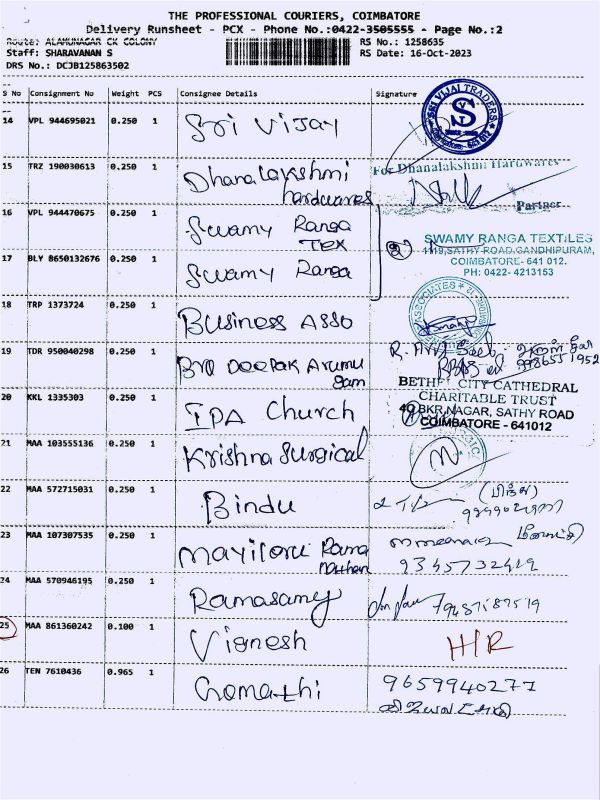 THE PROFESSIONAL COURIERS, COIMBATORE
Delivery Runsheet - PCX - Phone No.:0422-3505555 - Page No.:2
Route: ALAMUNAGAR CK COLONY RS No.: 1258635
Staff: SHARAVANAN S RS Date: 16-Oct-2023
DRS No.: DCJB125863502
S No Consignment No Weight PCS Consignee Details Signature
14 VPL 944695021 0.250 1 Sri Vijay
SRI VIJAI TRADERS
15 TRZ 190030613 0.250 1 Dhanalakshmi
hardwares
For Dhanalakshmi Hardwares
Partner
16 VPL 944470675 0.250 1 Swamy Ranga
Tex
17 BLY 8650132676 0.250 1 Swamy Ranga
SWAMY RANGA TEXTILES
SATHY ROAD, GANDHIPURAM,
COIMBATORE- 641 012.
PH: 0422- 4213153
18 TRP 1373724 0.250 1 Business Asso
19 TDR 950040298 0.250 1 Deepak Arumu
gam
20 KKL 1335303 0.250 1 IPA Church
BETHEL CITY CATHEDRAL
CHARITABLE TRUST
40 BKR NAGAR, SATHY ROAD
COIMBATORE - 641012
21 MAA 103555136 0.250 1 Krishna Surgical
22 MAA 572715031 0.250 1 Bindu
23 MAA 107307535 0.250 1 Rama
9345732419
24 MAA 570946195 0.250 1 Ramasamy
25 MAA 861360242 0.100 1 Vignesh H/R
26 TEN 7610436 0.965 1 Gomathi 9659940277